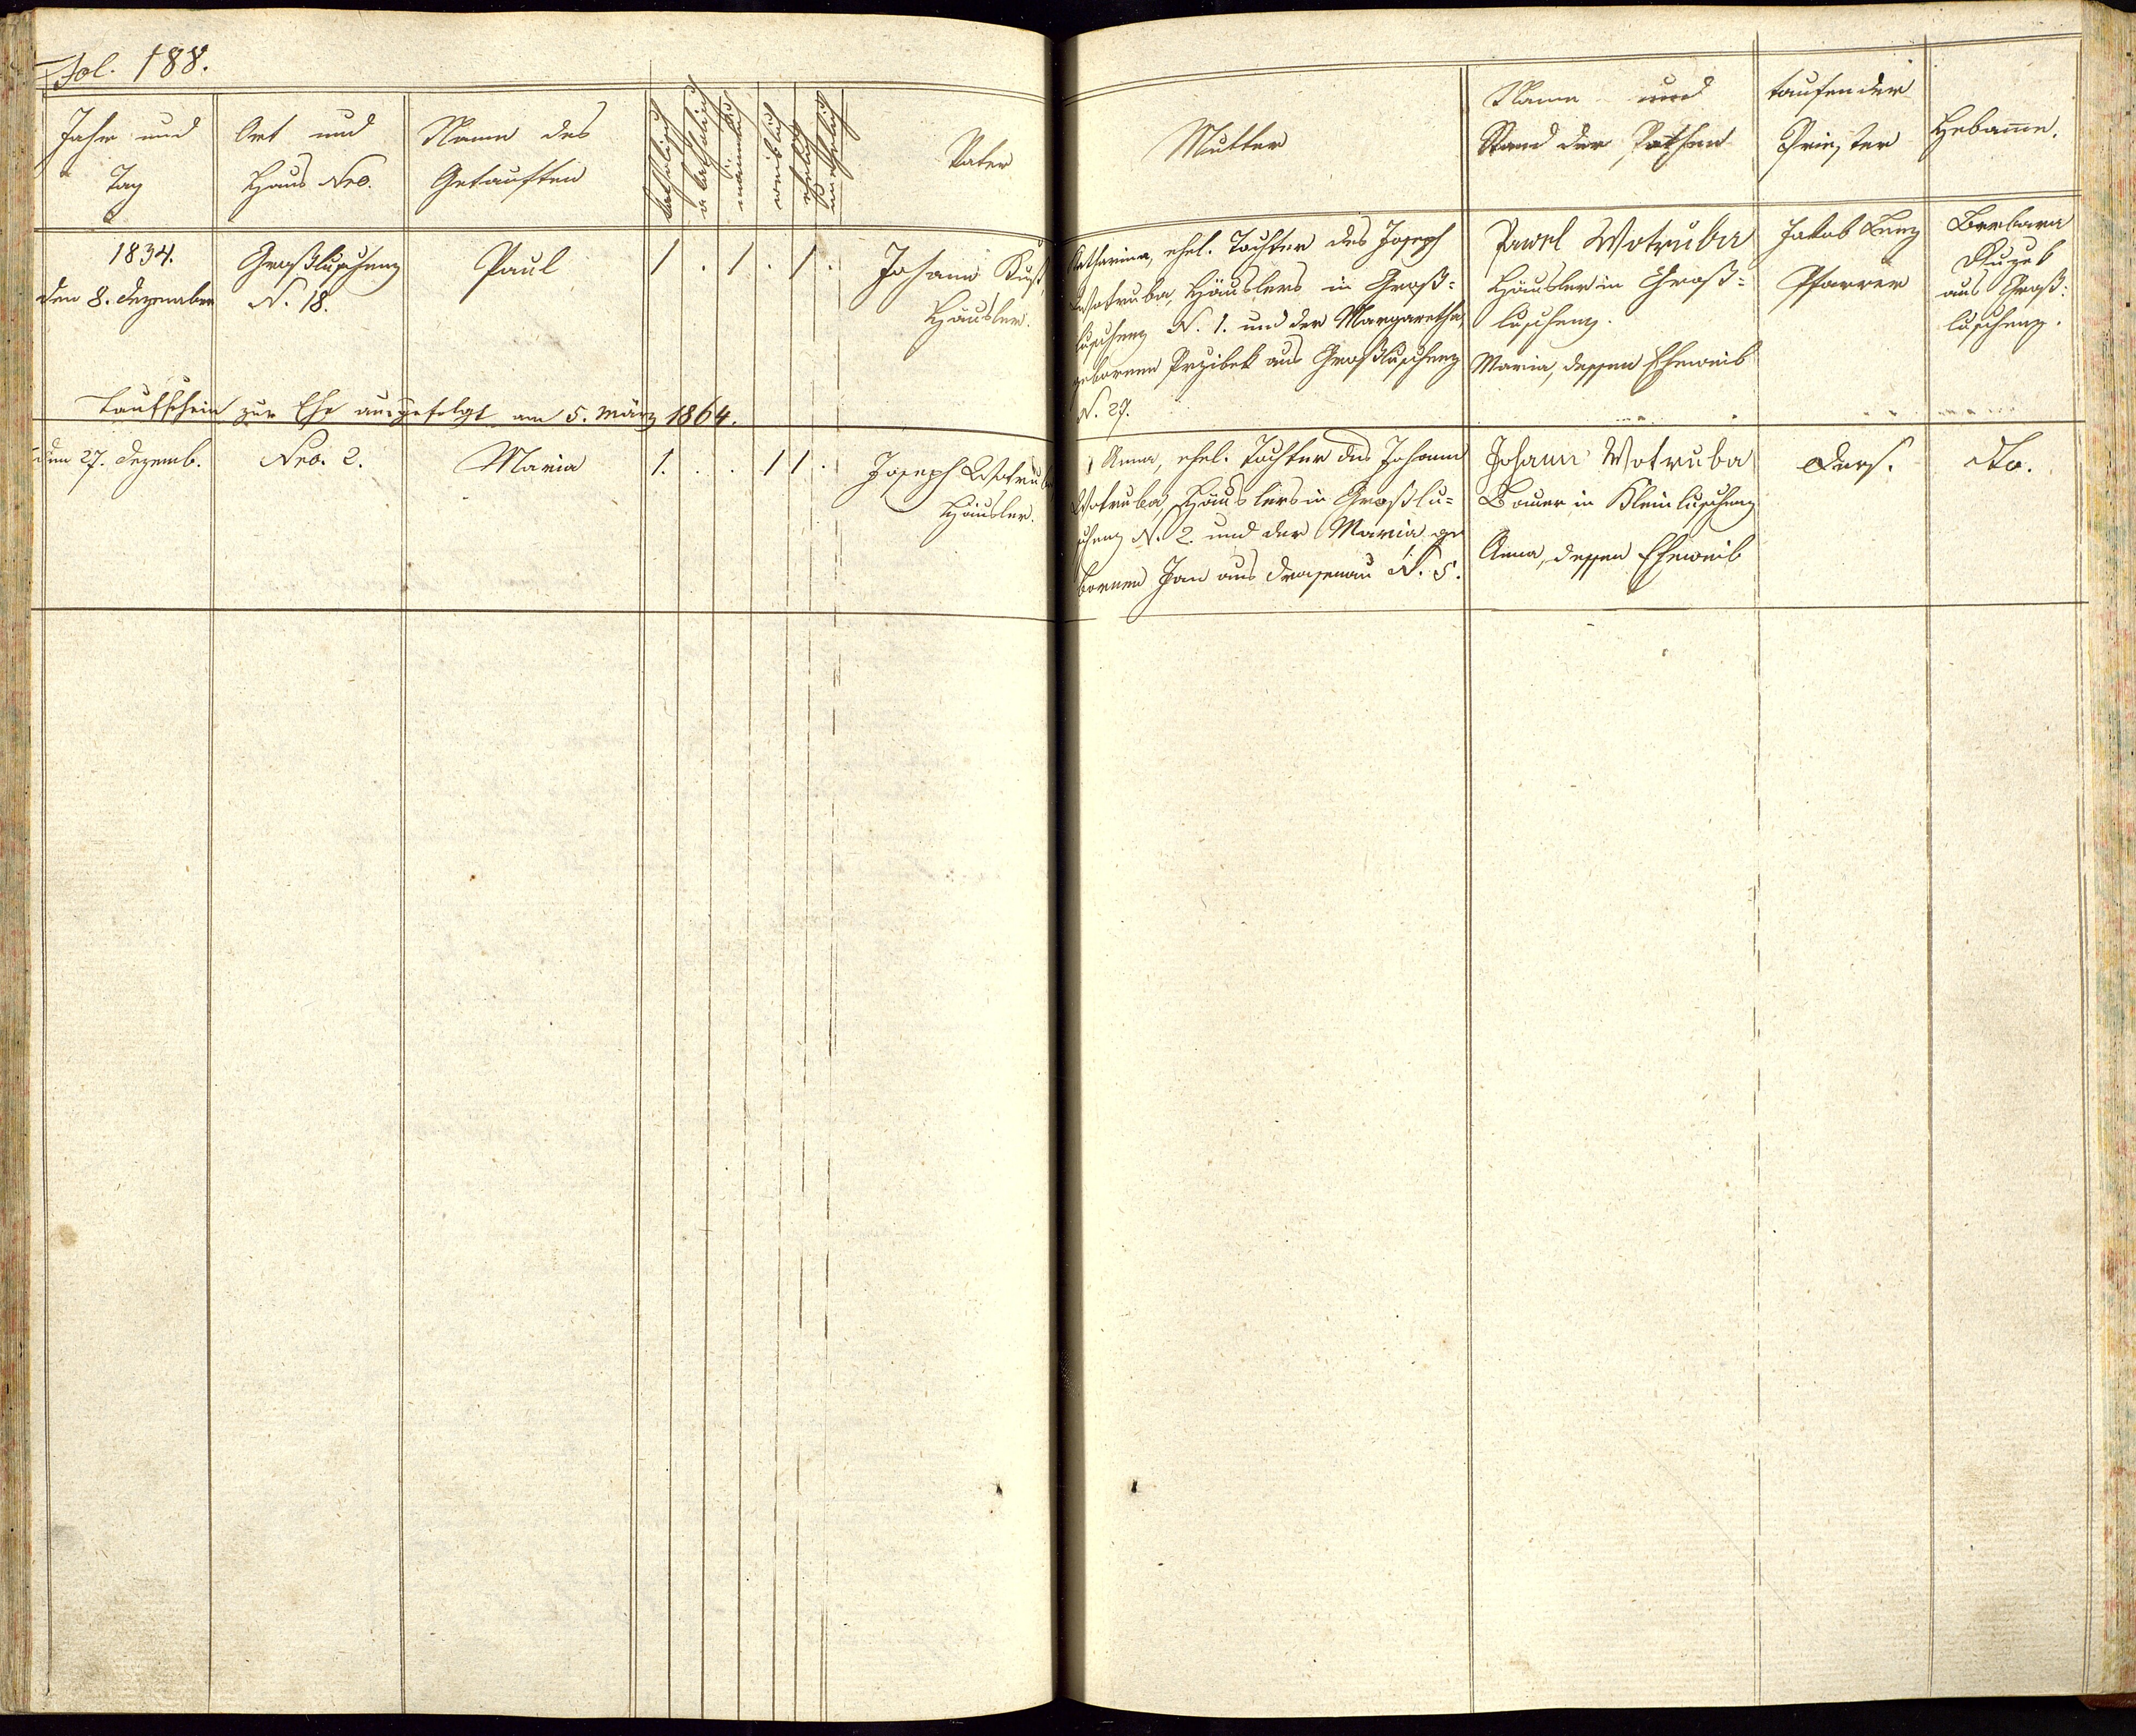 Fol. 188.
Jahr und
Tag
Ort und
Haus Nro.
Name des
Getauften
katholisch
akatholisch
männlich
weiblich
ehelich
unehelich
Vater
Mutter
Name und
Stand der Pathen
taufender
Priester
Hebam̄e.
1834.
den 8. Dezember
Großluschenz
N. 18.
Paul
1 . 1 . 1 .
Johann
Häusler.
Katharina, ehel. Tochter des Joseph
Wotruba, Häuslers in Groß=
luschenz N. 1. und der Margaretha,
gebornen Przibek aus Großluschenz
N. 27.
Pawel Wotruba
Häusler in Groß=
luschenz.
Maria, dessen Eheweib
Jakob
Pfarrer
Barbara
aus Groß:
luschenz.
Taufschein zur Ehe ausgefolgt am 5. März 1864.
den 27. Dezemb.
Nro. 2.
Maria
1 . . 1 1 .
Joseph Wotruba
Häusler.
Anna, ehel. Tochter des Johann
Wotruba, Häuslers in Großlu=
schenz N. 2. und der Maria ge
bornen Jan aus Drasenau N. 5.
Johann Wotruba
Bauer in Kleinluschenz
Anna, dessen Eheweib
Ders.
dto.